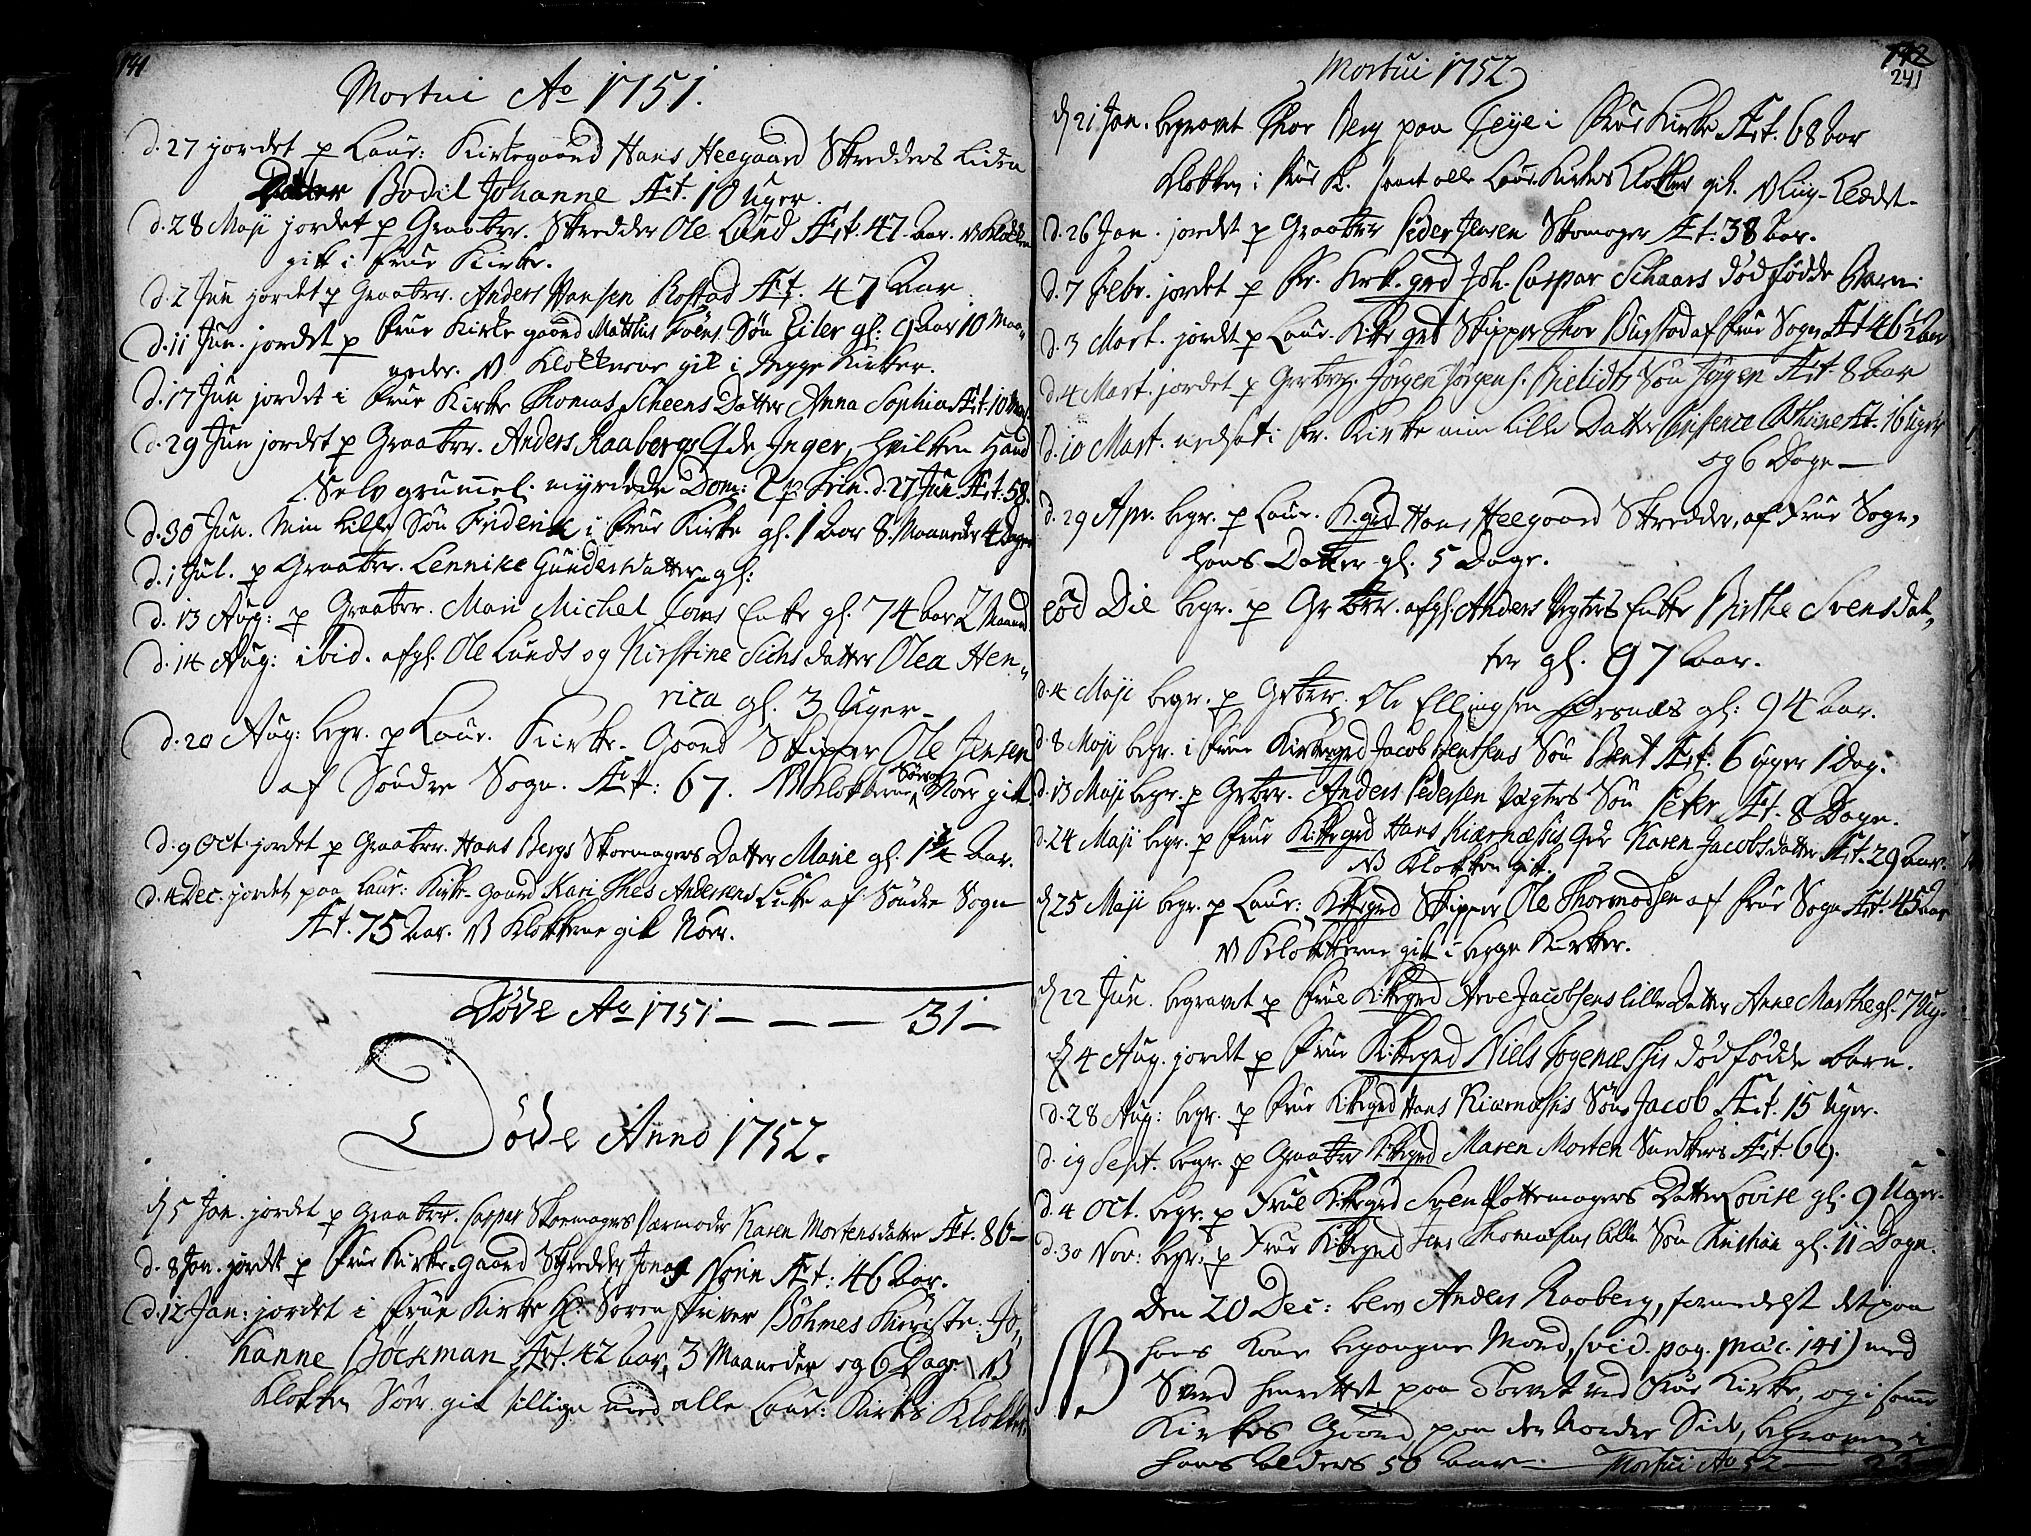 141
Mortui Ao 1751.
d. 27 jordet p Laur: Kirkegaard Hans Heegaard Skredders liden
Datter Bodil Johanne Æt. 10 Uger.
d. 28 Maji jordet p Graabrr. Skredder Ole Lund Æt. 47 Aar. NB Klokken
gik i Frue Kirke.
d. 2 Jun jordet p Graabrr. Anders Hansen Rostad Æt. 47 Aar.
d. 11 Jun. jordet p Frue Kirke gaard Matthis Søn Eiler gl: 9 Aar 10 Maa-
neder. NB Klokkerne gik i begge Kirker.
d. 17 Jun jordet i Frue Kirke Thomas Scheens Datter Anna Sophia Æt. 10
d. 29 Jun jordet p Graabrr. Anders Raabergs Qde Inger, hvilken Hand
Selv grummel. myrdede Dom: 2 p Trin. d. 27 Jun. Æt. 58.
d. 30 Jun. Min lille Søn Friderik i Frue Kirke gl. 1 Aar 8 Maaneder 4 Dage
d. 1 Jul. p Graabrr. Lennike Gundersdatter gl:
d. 13 Aug: p Graabrr. Mari Michel Enke gl. 74 Aar 2 Maaned
d. 14 Aug: ibid. afgl. Ole Lunds og Kirstine datter Olea Hen-
rica gl. 3 Uger
d. 20 Aug: begr. p Laur. Kirke-Gaard Skipper Ole Jensen
af Søndre Sogn. Æt: 67. NB Klokkerne Sør og Nør gik
d. 9 Oct. jordet p Graabrr. Hans Bergs Skoemagers Datter Marie gl. 1½ Aar.
d. 4 Dec. jordet paa Laur: Kirke-gaard Kari Thes Andersens Enke af Søndre Sogn
Æt. 75 Aar. NB Klokkerne gik Nørr.
Døde Ao 1751 - - - - 31 -
Døde Anno 1752.
d. 5 Jan. jordet p Graabrr. Caspar Skoemagers Værmoder Karen Mortensdatter Æt. 86
d. 8 Jan. jordet p Frue Kirke-Gaard Skredder Jonas Æt: 46 Aar.
d. 12 Jan: jordet i Frue Kirke Hr. Soren Skriver Böhmes Kieriste: Jo-
hanne Böckman Æt. 42 Aar, 3 Maaneder og 6 Dage. NB
Klokken Sør gik tillige med alle Laur: Kirkes Klokker.
142
241
Mortui 1752
d. 21 Jan. begravet Thor Berg paa Leye i Frue Kirke Æt. 68 Aar
Klokken i Frue K. samt alle Laur. Kirkes Klokker gik.
d. 26 Jan. jordet p Graabrr Peder Jensen Skomager Æt: 38 Aar.
d. 7 Febr. jordet p Fr. Kirk.grd Joh. Caspar Schaars dødfødde Barn.
d. 3 Mart. jordet p Laur. Kirke grd Skipper Thor Bustad af Frue Sogn Æt 46½ Aar
d. 4 Mart. jordet p Grbrr. Jörgen Jörgens. Søn Jörgen Æt. 8 Aar
d. 10 Mart. nedsat i Fr. Kirke min lille Datter Cathrine Æt. 16 Uger
og 6 Dage
d. 29 Apr. begr. p Laur. K.grd Hans Heegaard Skredder, af Frue Sogn,
hans Datter gl. 5 Dage.
eod Die begr. p Grbrr. afgl. Anders Vegters Enke Birthe Svensdat-
ter gl. 97 Aar.
d. 4 Maji begr. p Grbrr. Ole Ellingsen gl: 94 Aar.
d. 8 Maji begr. i Frue Kirkegrd Jacob Bentsens Søn Bent Æt. 6 Uger 1 Dag.
d. 13 Maji begr. p Grbrr. Anders Pedersen Vegters Søn Peter Æt. 8 Dage.
d. 24 Maji begr. p Frue Kirkegrd Hans Kiærnæsis Qde Karen Jacobsdatter Æt. 29 Aar.
NB Klokken gik.
d. 25 Maji begr. p Laur: Kirkegrd Skipper Ole Thormodsen af Frue Sogn Æt. 45 Aar
NB Klokkerne gik i begge Kirker.
d. 22 Jun. begravet p Frue Kirkegrd Arve Jacobsens lille Datter Anne Marthe gl. 7 Ug.
d. 4 Aug. jordet p Frue Kirkegrd Niels dødfødde Barn.
d. 28 Aug: begr. p Frue Kirkegrd Hans Kiærnæsis Søn Jacob Æt. 15 Uger.
d. 19 Sept. begr. p Graabrr Kirkegrd Maren Morten Æt. 69.
d. 4 Oct. begr: p Frue Kirkegrd Sven Pottemagers Datter Lovise gl. 9 Uger.
d. 30 Nov: begr: p Frue Kirkegrd Jens Thomæsius lille Søn Kristian gl. 11 Dage.
NB Den 20 Dec: blev Anders Raaberg, formedelst det paa
hans Kone begangne Mord, (vid. pag. præc. 141) med
Sverd henrettet, paa Torvet ved Frue Kirke, og i samme
Kirkes Gaard, paa den Nordre Side, begraven, i
hans Alders 50 Aar. - Mortui Ao 52 - 23